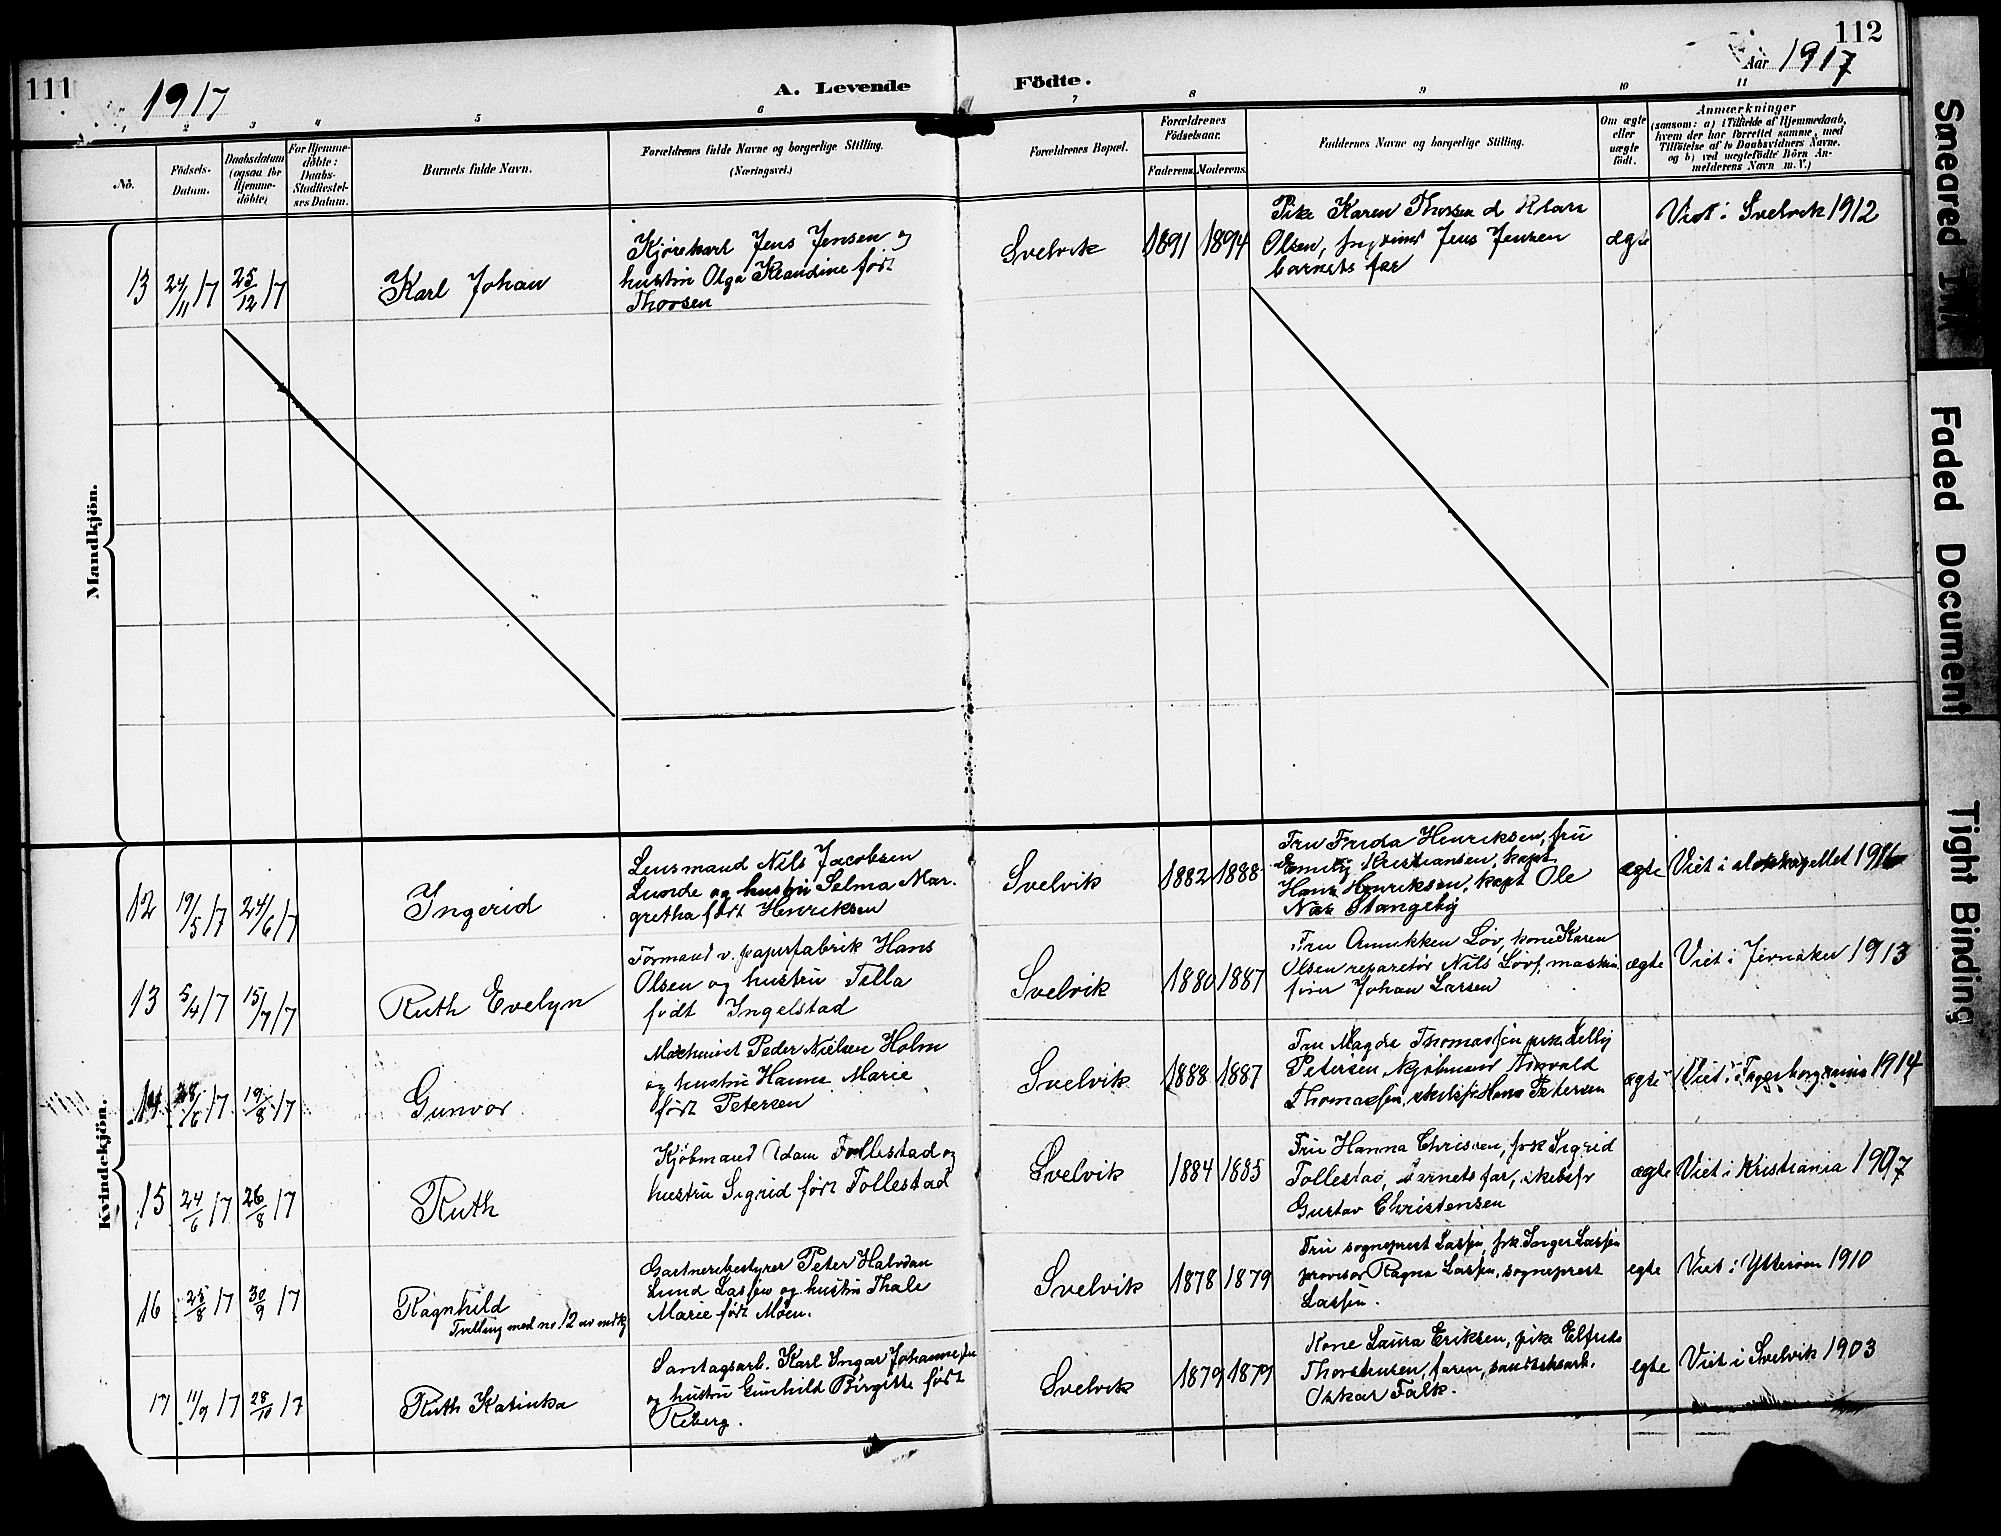 111
1917
A. Levende
Födte.
112
Aar 1917
2 3 4 5 6 7 8 9 10 11
No.
Födsels-
Datum.
Daabsdatum
(ogsaa for
Hjemme-
döbte)
For Hjemme-
döbte:
Daabs-
Stadfæstel-
ses Datum.
Barnets fulde Navn.
Forældrenes fulde Navne og borgerlige Stilling.
(Næringsvei.)
Forældrenes Bopæl.
Forældrenes
Födselsaar.
Faderens. Moderens.
Faddernes Navne og borgerlige Stilling.
Om ægte
eller
uægte
födt.
Anmærkninger
(saasom: a) i Tilfælde af Hjemmedaab,
hvem der har forrettet samme, med
Tilföielse af to Daabsvidners Navne,
og b) ved uægtefödte Börn An-
melderens Navn m. V.)
Mandkjön.
13 24/11 17 25/12 17
Karl Johan
Kjørekarl Jens Jensen og
hustru Olga Klaudine født
Thorsen
Svelvik
1891 1894
Pike Karen Thorsen
Olsen, Jens Jensen
barnets far
ægte
Viet i Svelvik 1912
Kvindekjön.
12 19/5 17 24/6 17
Ingerid
Lensmand Nils Jacobsen
Lunde og hustru Selma Mar-
gretha født Henriksen
Svelvik
1882 1888
Fru Frida Henriksen, fru
Emily Kristiansen, kapt
Hans Henriksen, kapt Ole
Stangeby
ægte
Viet i slotskapellet 1916
13 5/4 17 15/7 17
Ruth Evelyn
Formand v. papirfabrik Hans
Olsen og hustru Tilla
født Ingelstad
Svelvik
1880 1887
Fru Annikken Løv, kone Karen
Olsen reparatør Nils Løv, maskin
fører Johan Larsen
ægte
Viet i Jevnaker 1913
14 17 19/8 17
Gunvor
Maskinist Peder Nielsen Holm
og hustru Hanna Marie
født Petersen
Svelvik
1888 1887
Fru Magda Thomassen
Petersen, kjøbmand
Thomassen, Hans Petersen
ægte
Viet i Fagerborg 1914
15 24/6 17 26/8 17
Ruth
Kjøbmand Adam Follestad og
hustru Sigrid født Follestad
Svelvik
1884 1885
Fru Hanna Christen, frk Sigrid
Follestad, barnets far, skibsfr
Gustav Christensen
ægte
Viet i Kristiania 1907
16 25/8 17 30/9 17
Ragnhild
Tvilling med no. 12 av
Gartnerbestyrer Peter Halvdan
Lund Lassen og hustru Thale
Marie født Moen.
Svelvik
1878 1879
Fru sogneprest Lassen, frk. Inger Lassen
provisor Ragna Lassen, sogneprest
Lassen.
egte
Viet i Ytterøen 1910
17 11/9 17 28/10 17
Ruth Katinka
Santagsarb. Karl Ingar
og hustru Gunhild Birgitte født
Reberg.
Svelvik
1879 1879
Kone Laura Eriksen, pike Elfrida
Thorstensen, faren,
Oskar Falk.
egte
Viet i Svelvik 1903
Smeared Ink
Faded Document
Tight Binding